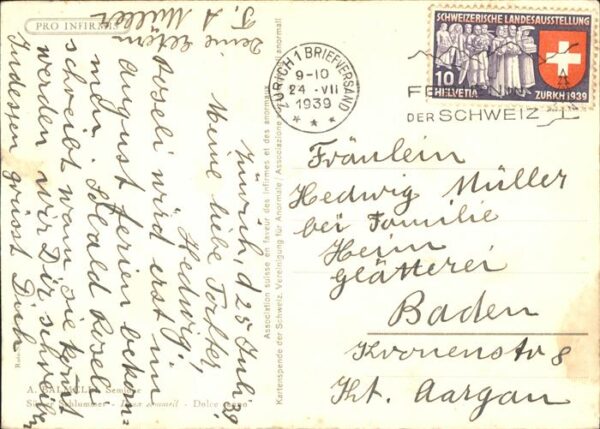 PRO INFIRMIS
Zürich, d 25 Juli 39
Meine liebe Tochter,
Hedwig!
Roseli wird erst im
August Ferien bekom=
men. Sobald Roseli
schreibt wann sie kommt
werden wir Dir schreiben
Indessen grüsst Dich
Deine Eltern
F. A Müller
Association suisse en faveur des infirmes et des anormaux
Kartenspende der Schweiz. Vereinigung für Anormale
ZÜRICH 1 BRIEFVERSAND
9-10
24 · VII
1939
DER SCHWEIZ
SCHWEIZERISCHE LANDESAUSSTELLUNG
10
HELVETIA
ZÜRICH 1939
Fräulein
Hedwig Müller
bei Familie
Heim
Glätterei
Baden
Kronenstr 8
Kt. Aargau
Süsser Schlummer - Doux sommeil - Dolce sonno